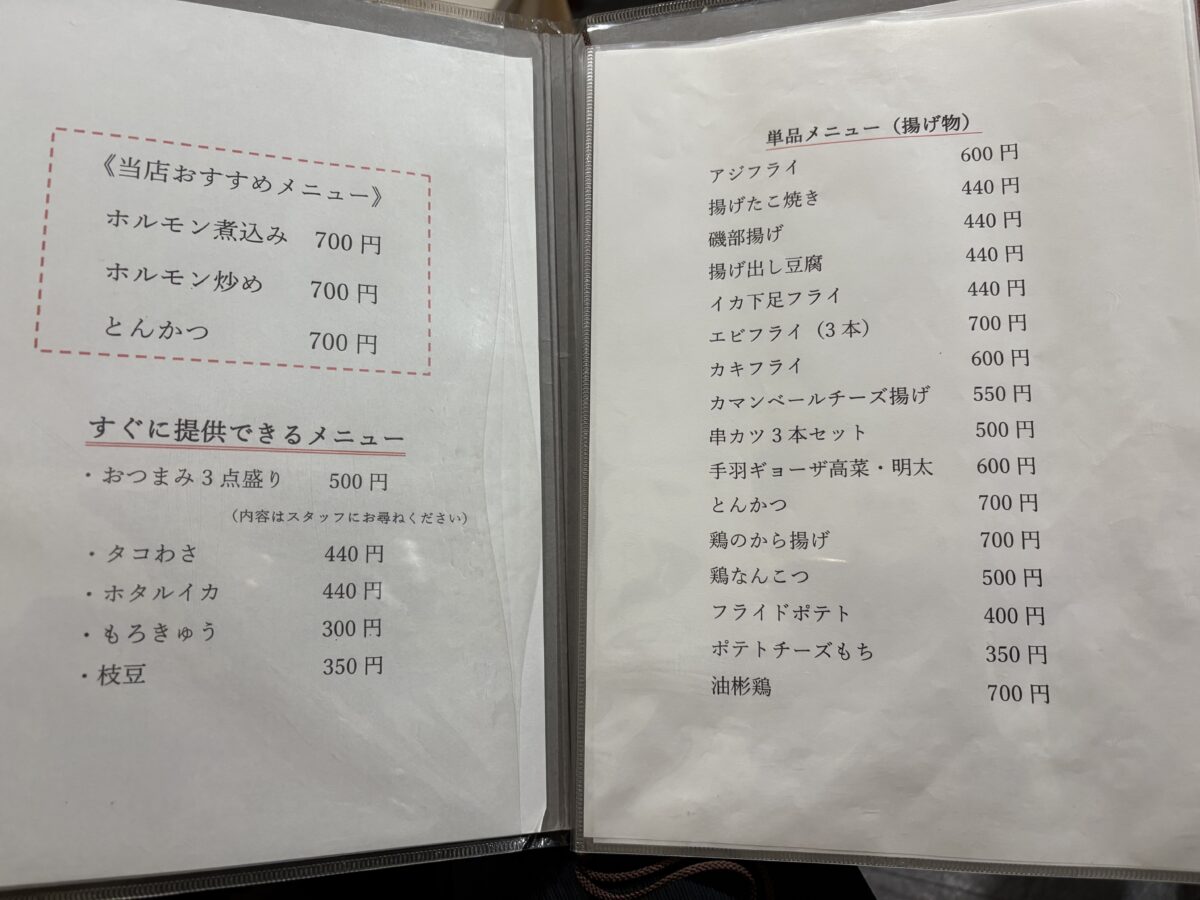 《当店おすすめメニュー》
ホルモン煮込み 700 円
ホルモン炒め 700 円
とんかつ 700 円
すぐに提供できるメニュー
・おつまみ３点盛り 500 円
（内容はスタッフにお尋ねください）
・タコわさ 440 円
・ホタルイカ 440 円
・もろきゅう 300 円
・枝豆 350 円
単品メニュー（揚げ物）
アジフライ 600 円
揚げたこ焼き 440 円
磯部揚げ 440 円
揚げ出し豆腐 440 円
イカ下足フライ 440 円
エビフライ（3 本） 700 円
カキフライ 600 円
カマンベールチーズ揚げ 550 円
串カツ３本セット 500 円
手羽ギョーザ高菜・明太 600 円
とんかつ 700 円
鶏のから揚げ 700 円
鶏なんこつ 500 円
フライドポテト 400 円
ポテトチーズもち 350 円
油彬鶏 700 円